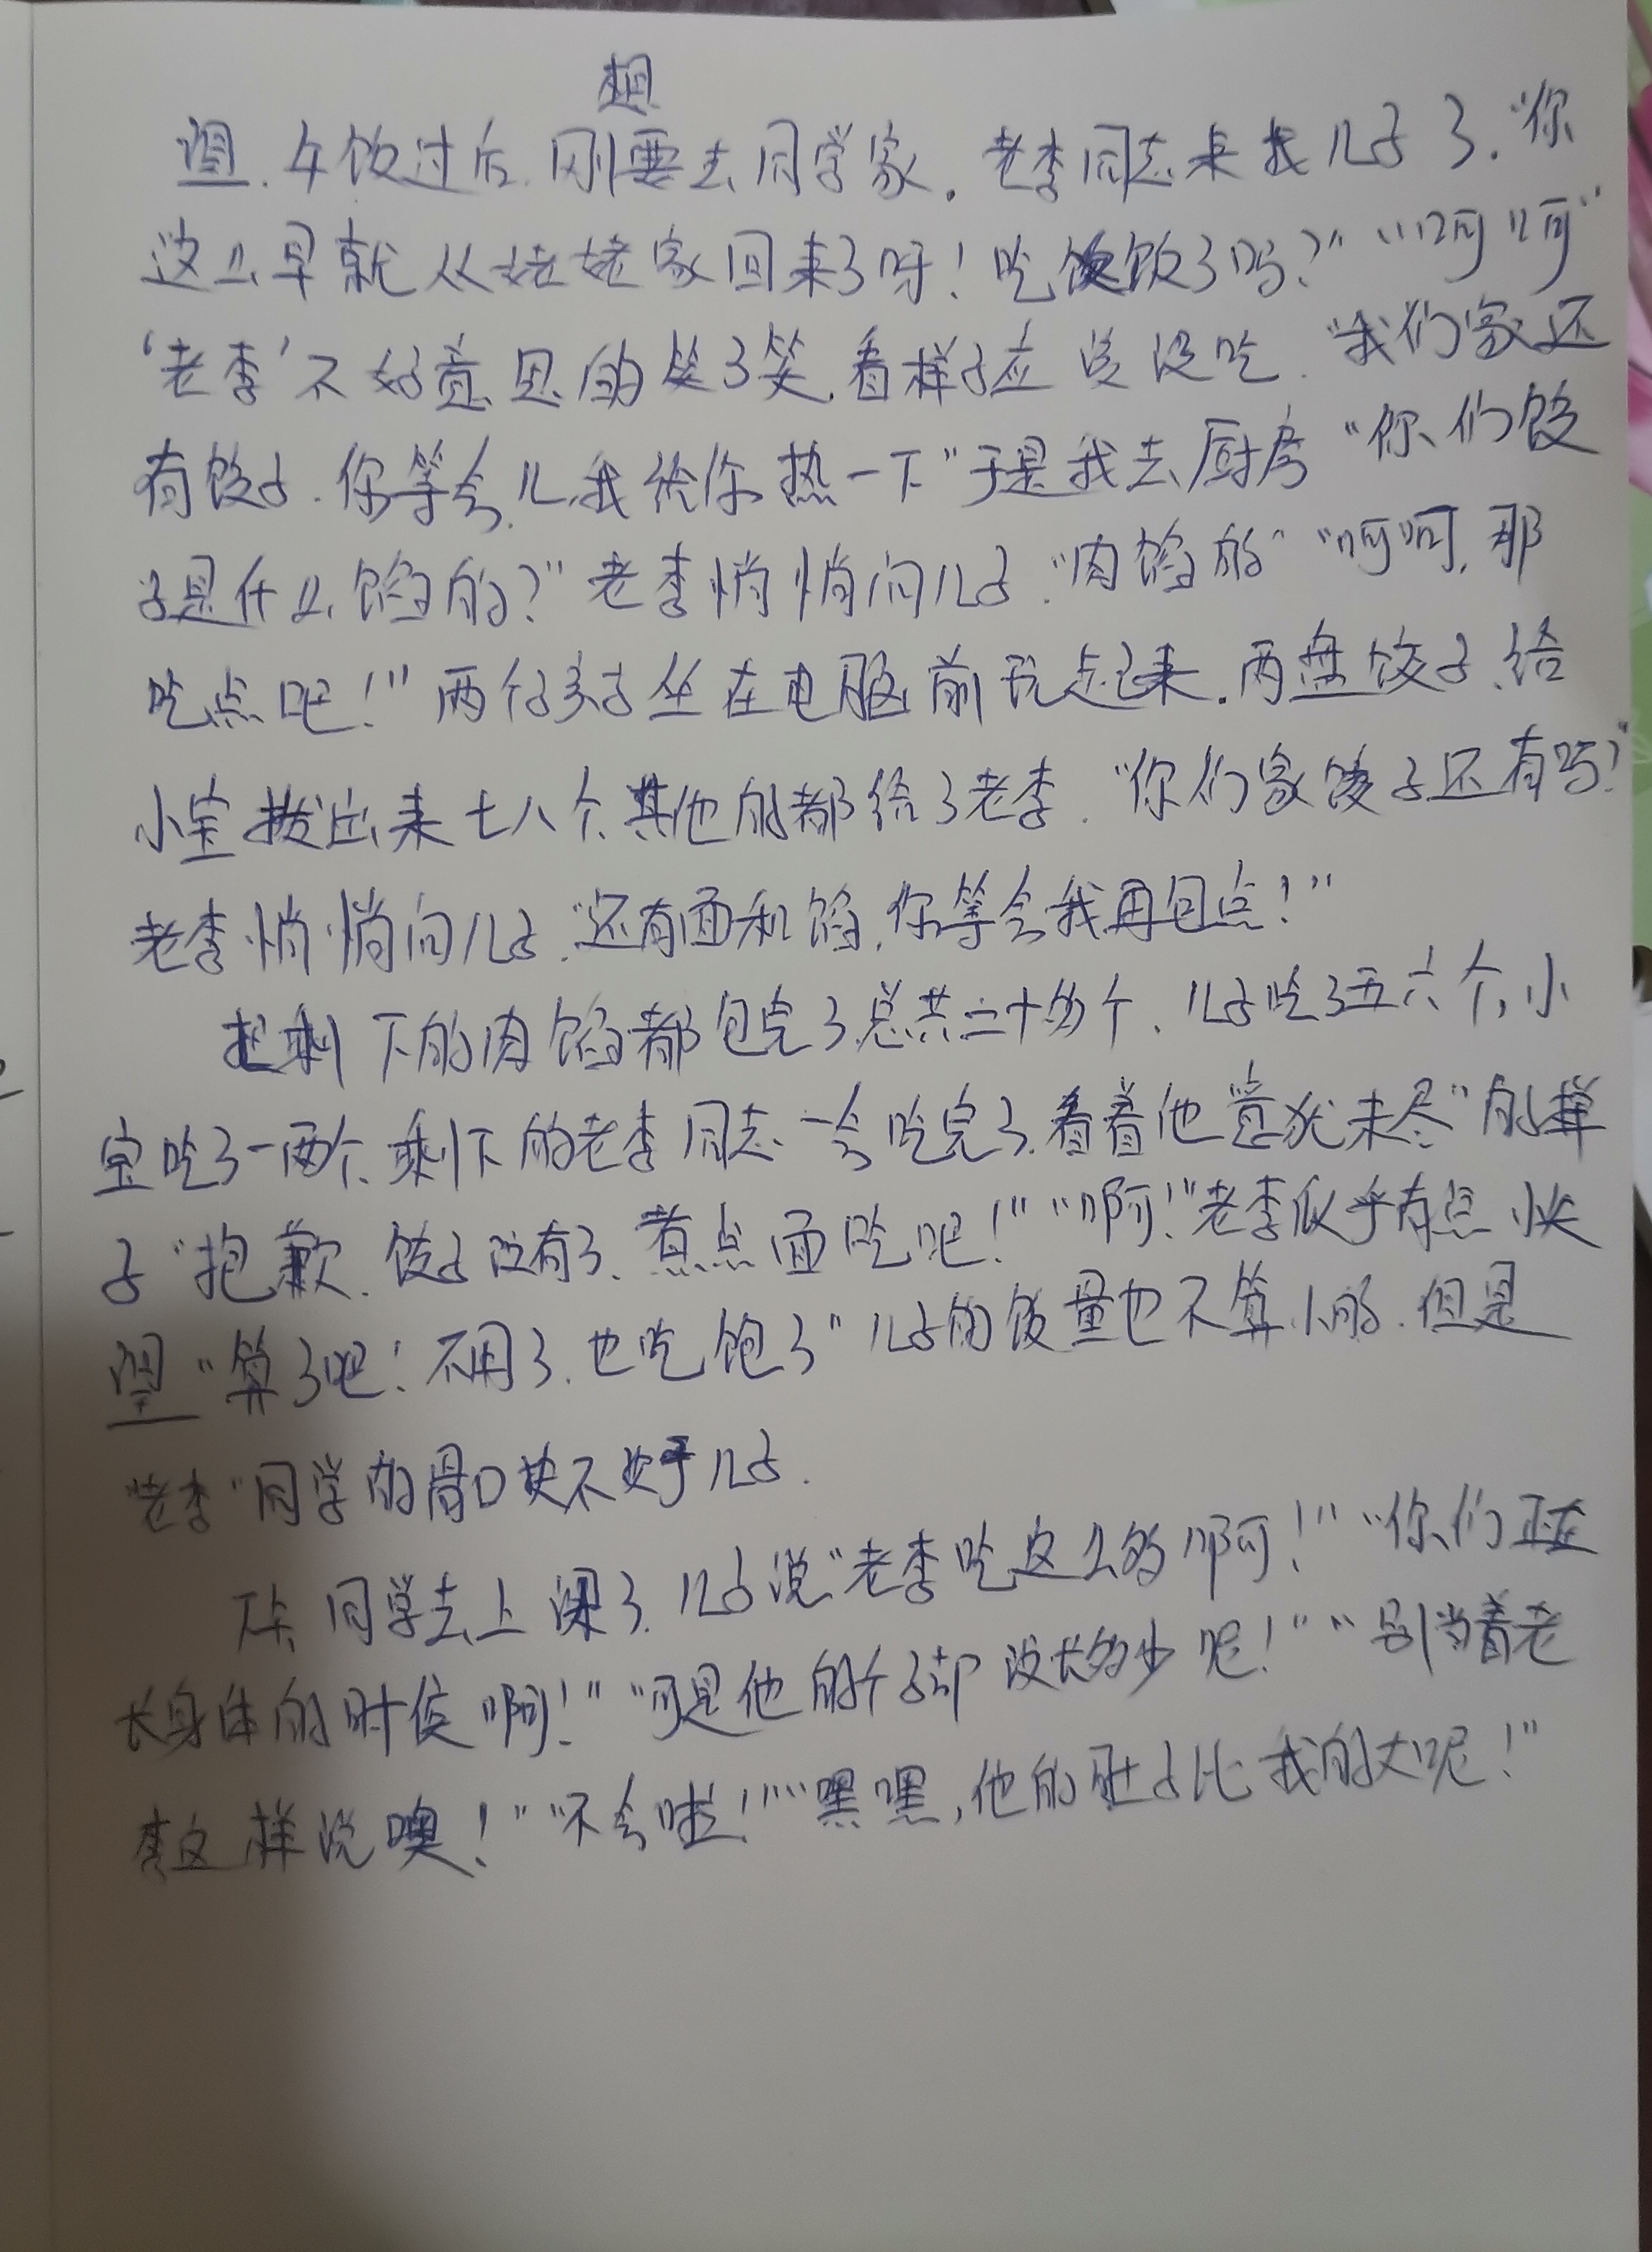 想
望。午饭过后,刚要去同学家。老李同志来找儿子了。“你
这么早就从姥姥家回来了呀!吃饭了吗?”“呵呵”
‘老李’不好意思的笑了笑,看样子应该没吃。“我们家还
有饺子,你等会儿,我给你热一下”于是我去厨房“你们饺
子是什么馅的?”老李悄悄问儿子.“肉馅的”“呵呵,那
吃点吧!”两个孩子坐在电脑前玩起来。两盘饺子,给
小宝拨出来七八个,其他的都给了老李.“你们家饺子还有吗?”
老李悄悄问儿子.“还有面和馅,你等会我再包点!”
把剩下的肉馅都包完了,总共二十多个,儿子吃了五六个,小
宝吃了一两个,剩下的老李同志一会吃完了,看着他意犹未尽”的样
子“抱歉,饺子没有了,煮点面吃吧!”“啊!”老李似乎有点失
望“算了吧!不用了,也吃饱了”儿子的饭量也不算小的,但是
“老李”同学的胃口决不次于儿子.
同学去上课了,儿子说“老李吃这么多啊!”“你们正在
长身体的时候啊!”“可是他的个子却没长多少呢!”“别当着老
李这样说噢!”“不会啦!”“嘿嘿,他的肚子比我的大呢!”